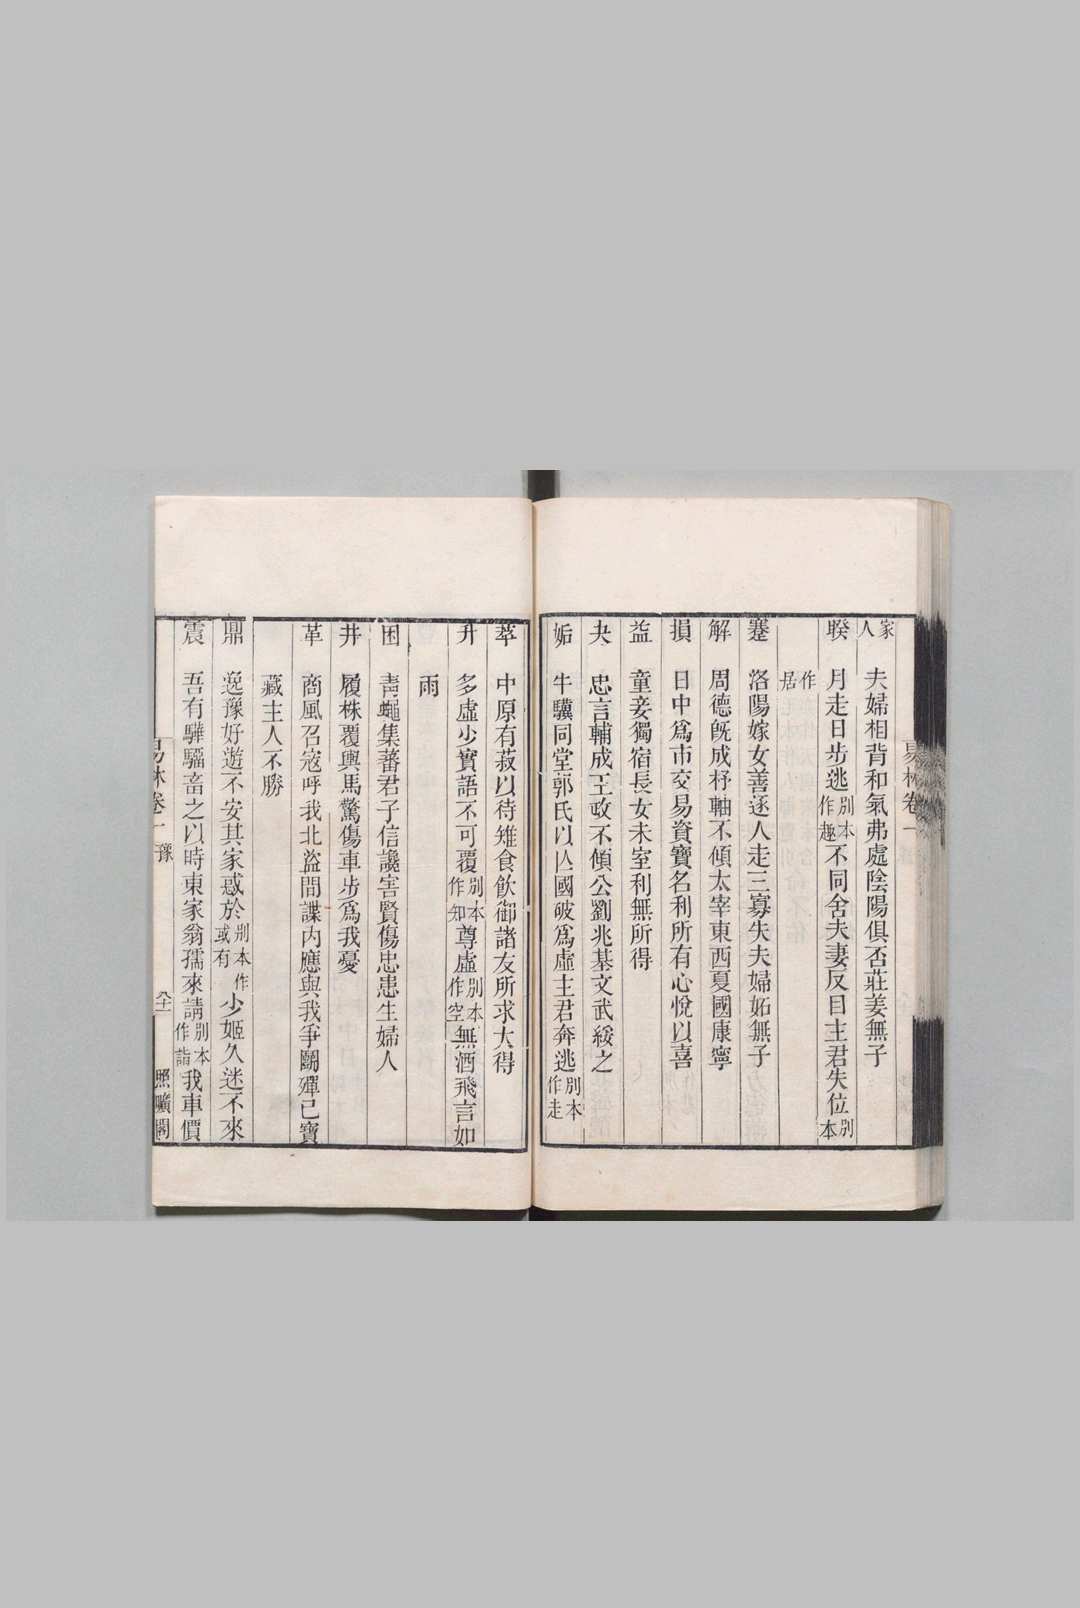 易林卷一
家人　夫婦相背和氣弗處陰陽俱否莊姜無子
睽　月走日步逃別本作趣不同舍夫妻反目主君失位別本
作居
蹇　洛陽嫁女善逐人走三寡失夫婦妬無子
解　周德旣成杼軸不傾太宰東西夏國康寧
損　日中爲市交易資寶名利所有心悅以喜
益　童妾獨宿長女未室利無所得
夬　忠言輔成王政不傾公劉兆基文武綏之
姤　牛驥同堂郭氏以亾國破爲虛主君奔逃別本作走
萃　中原有菽以待雉食飲御諸友所求大得
升　多虛少實語不可覆別本作知尊虛別本作空無酒飛言如
雨
困　靑蠅集蕃君子信讒害賢傷忠患生婦人
井　履株覆輿馬驚傷車步爲我憂
革　商風召寇呼我北盜間諜內應與我爭鬬殫已寶
藏主人不勝
鼎　逸豫好遊不安其家惑於別本作或有少姬久迷不來
震　吾有驊騮畜之以時東家翁孺來請別本作詣我車價
易林卷一　豫　照曠閣